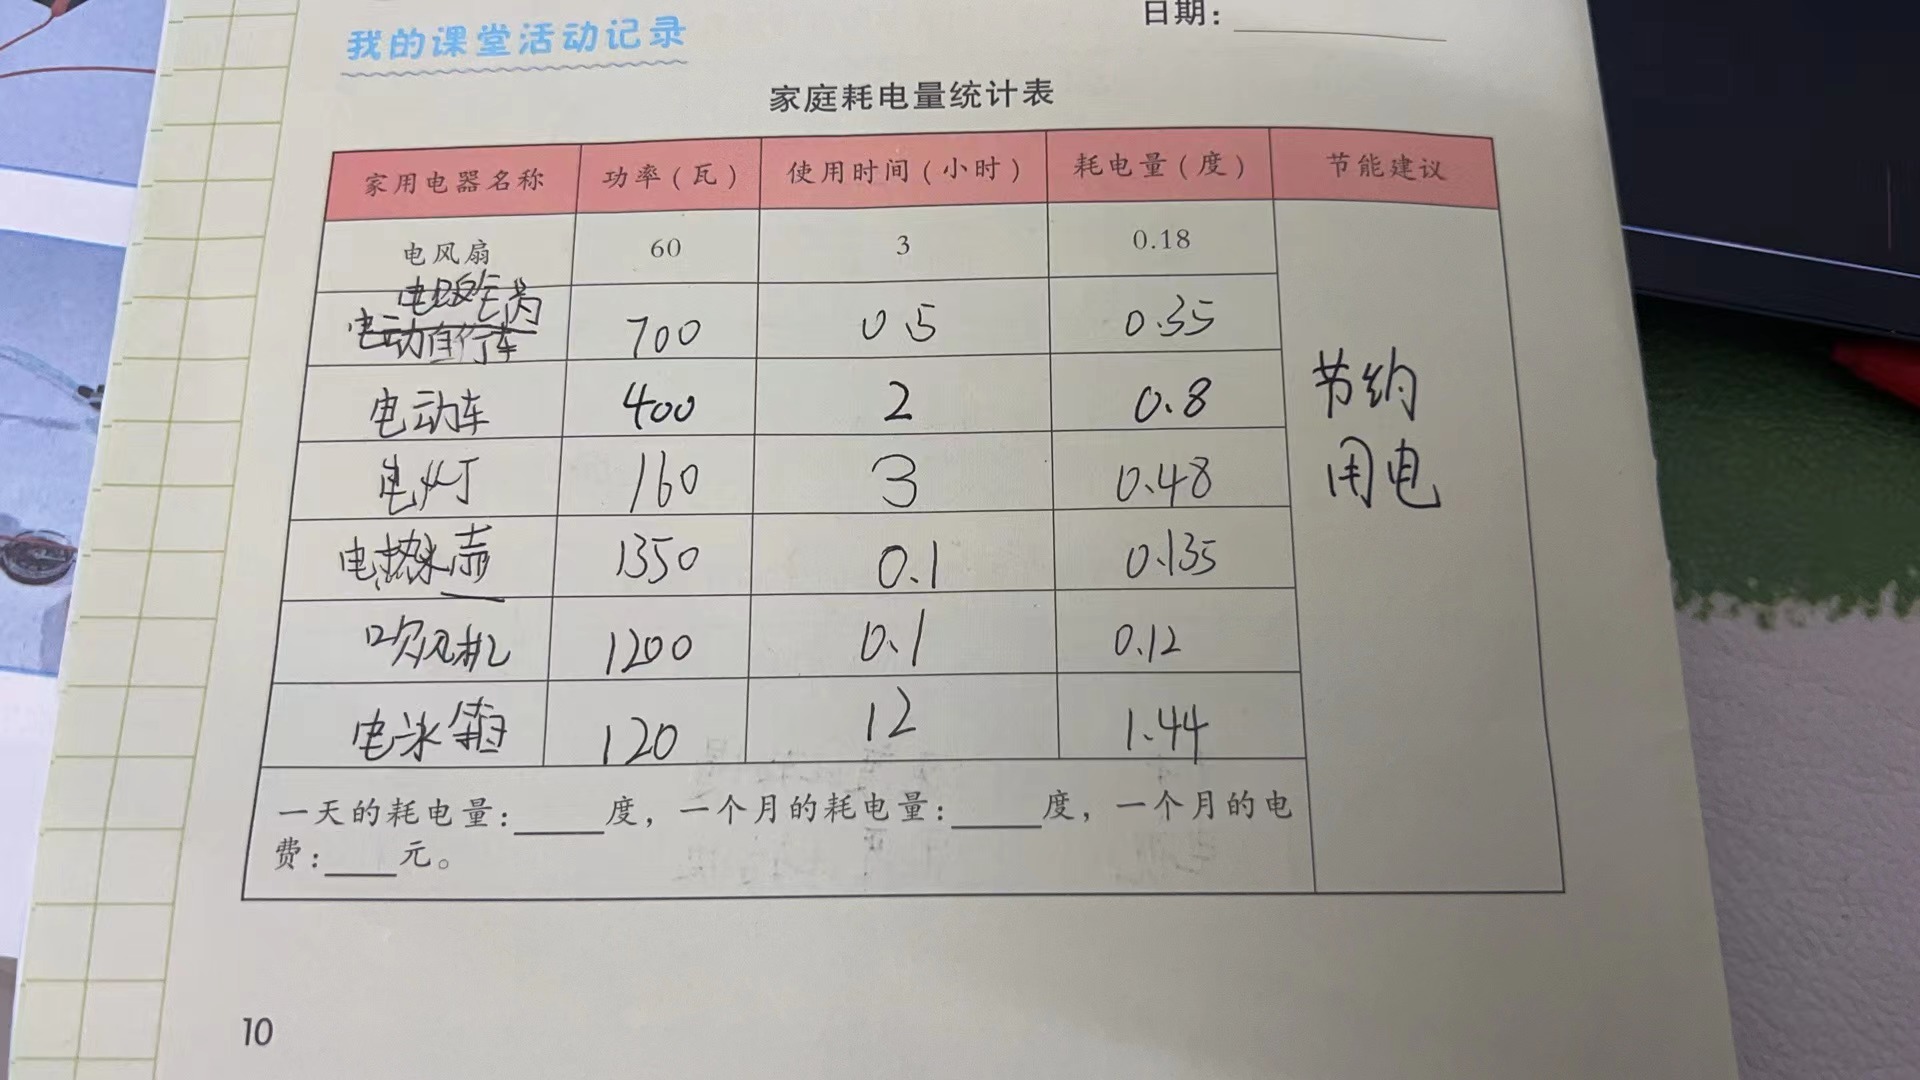 我的课堂活动记录
日期：
家庭耗电量统计表
家用电器名称 功率（瓦） 使用时间（小时） 耗电量（度） 节能建议
电风扇 60 3 0.18
电饭锅
电动自行车 700 0.5 0.35
电动车 400 2 0.8
节约
用电
电灯 160 3 0.48
电热水壶 1350 0.1 0.135
吹风机 1200 0.1 0.12
电冰箱 120 12 1.44
一天的耗电量：____度，一个月的耗电量：____度，一个月的电
费：____元。
10